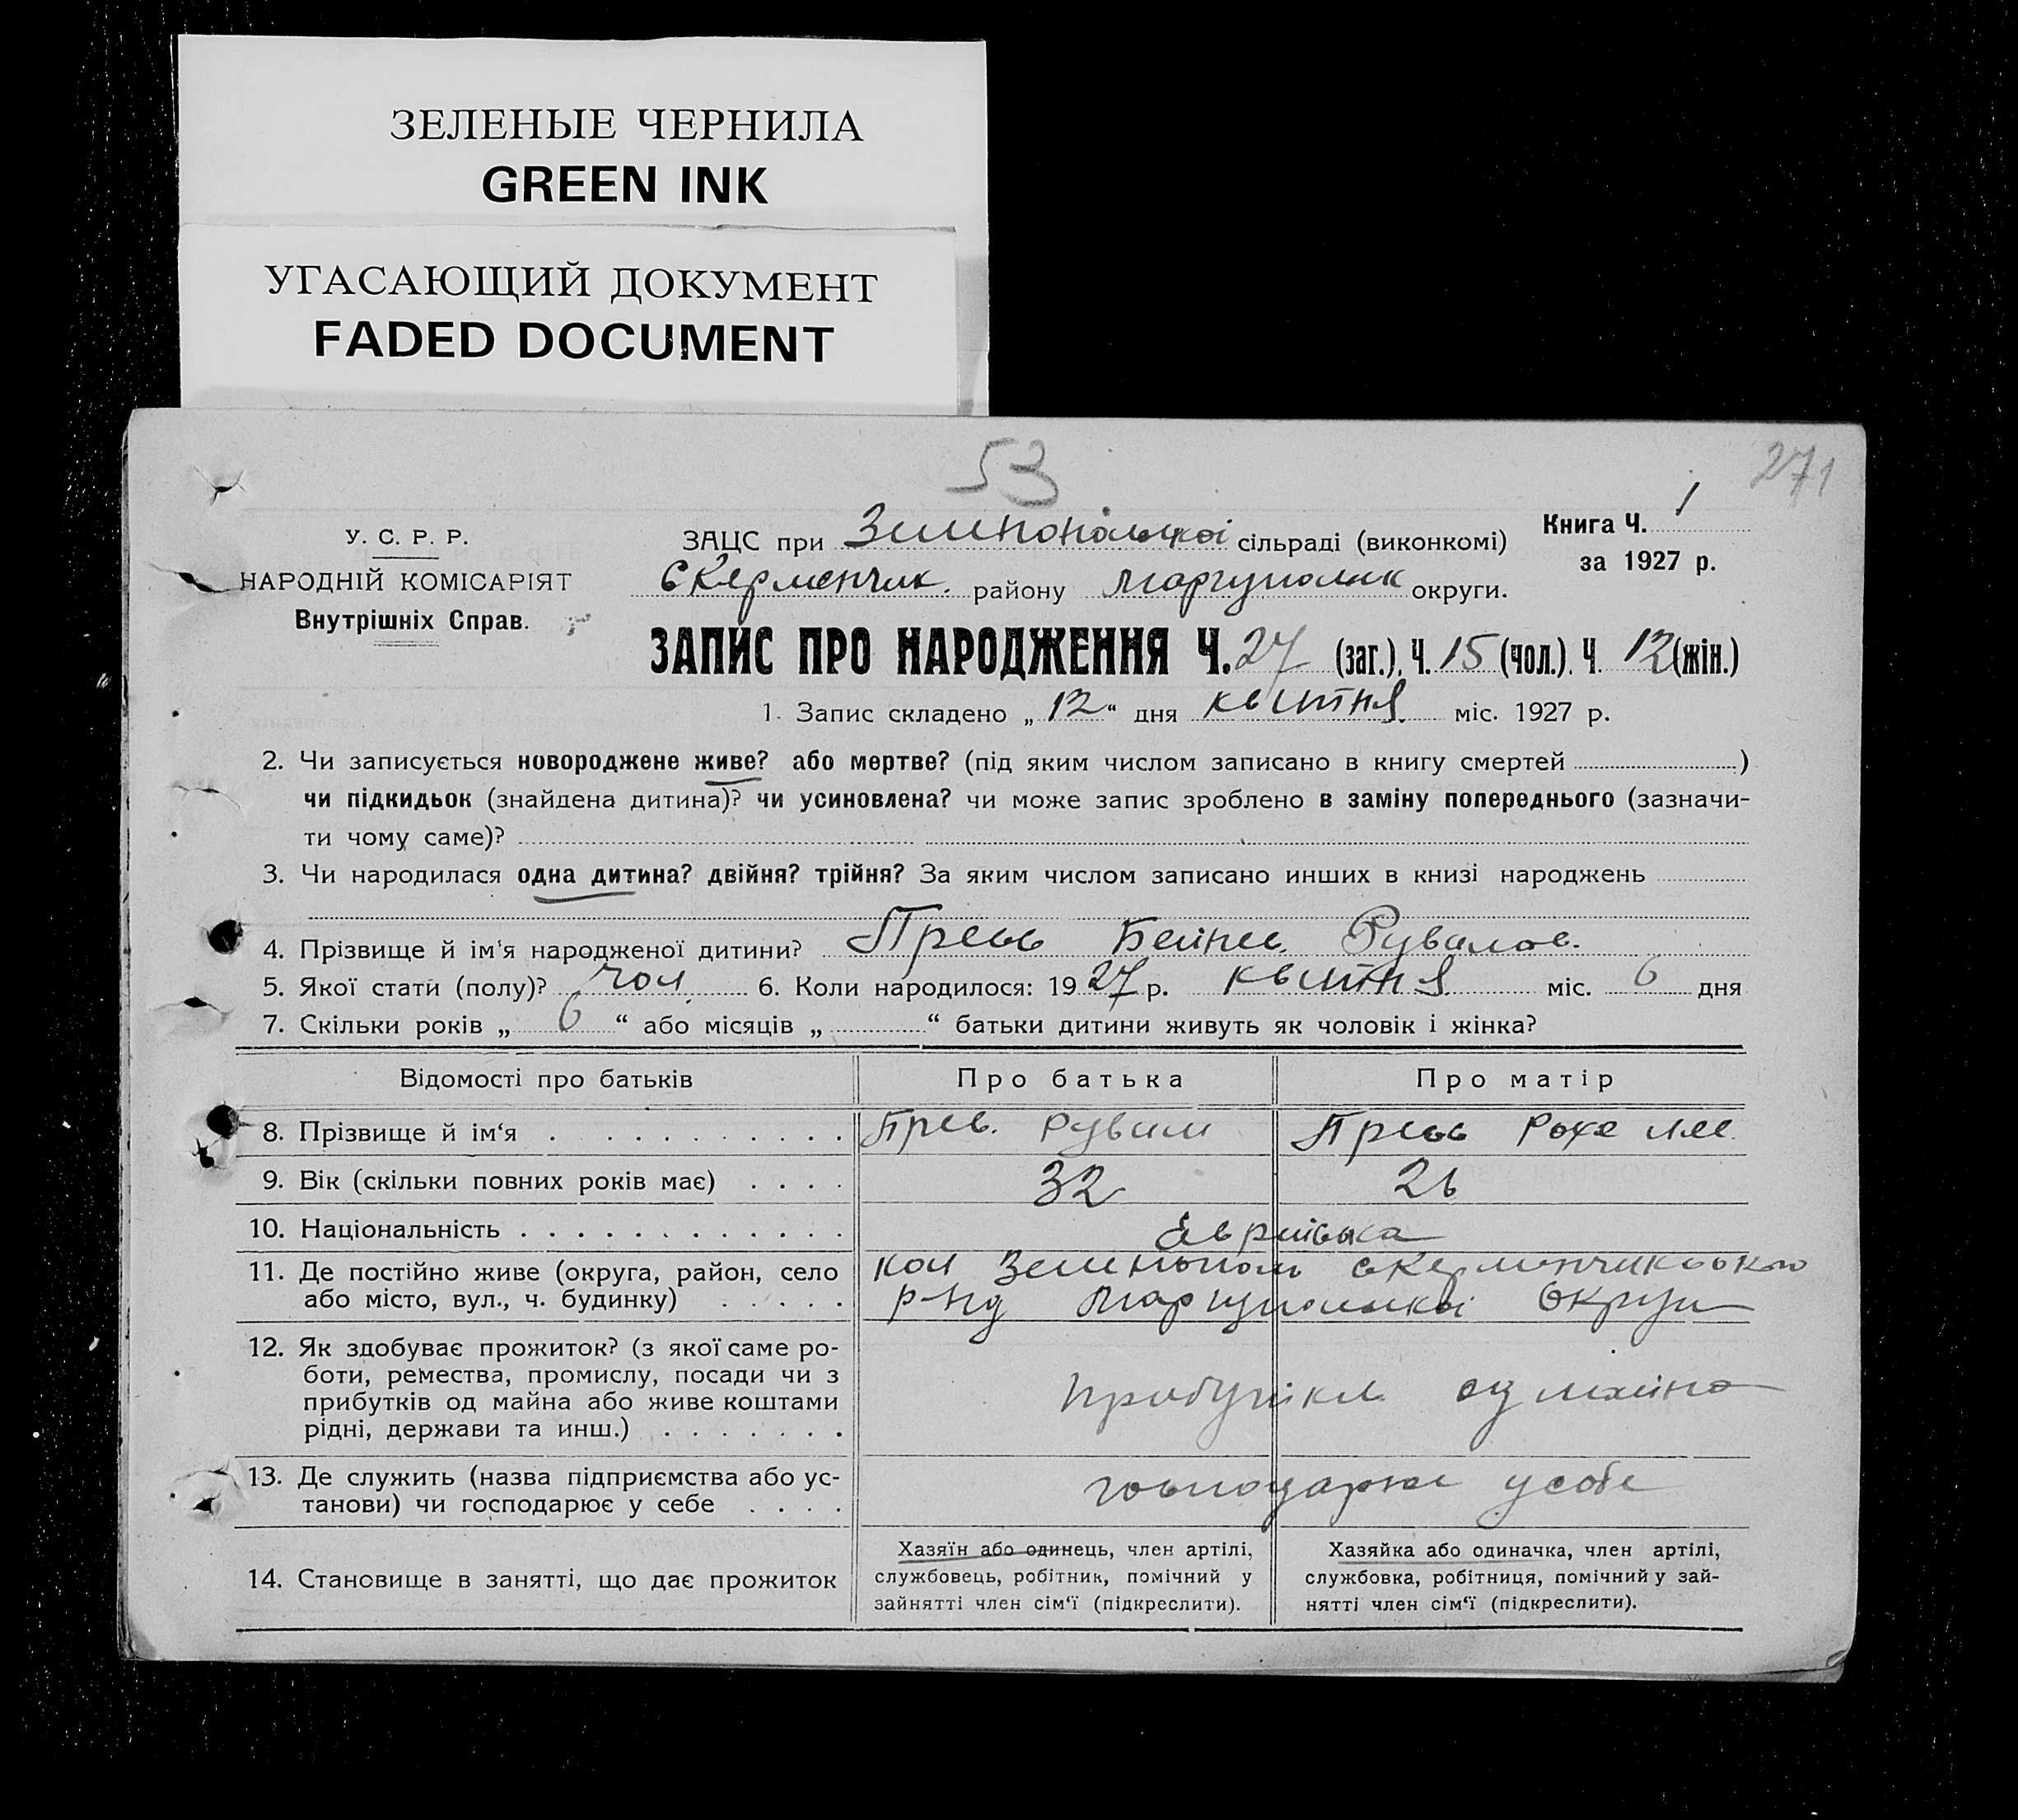 ЗЕЛЕНЫЕ ЧЕРНИЛА
GREEN INK
УГАСАЮЩИЙ ДОКУМЕНТ
FADED DOCUMENT
53
271
У. С. Р. Р.
НАРОДНІЙ КОМІСАРІЯТ
Внутрішніх Справ.
Книга Ч. 1
за 1927 р.
ЗАЦС при сільраді (виконкомі)
району округи.
ЗАПИС ПРО НАРОДЖЕННЯ Ч. 27 (заг.), Ч. 15 (чол.). Ч. 12 (жін.)
1. Запис складено „ 12 “ дня квітня міс. 1927 р.
2. Чи записується новороджене живе? або мертве? (під яким числом записано в книгу смертей )
чи підкидьок (знайдена дитина)? чи усиновлена? чи може запис зроблено в заміну попереднього (зазначи-
ти чому саме)?
3. Чи народилася одна дитина? двійня? трійня? За яким числом записано инших в книзі народжень
4. Прізвище й ім‘я народженої дитини? Рувимов.
5. Якої статі (полу)? чол 6. Коли народилося: 1927 р. квітня міс. 6 дня
7. Скільки років „ 6 “ або місяців „ “ батьки дитини живуть як чоловік і жінка?
Відомості про батьків
Про батька
Про матір
8. Прізвище й ім‘я . . . . . . . . . . Рувим
9. Вік (скільки повних років має) . . . . 32 26
10. Національність . . . . . . . . . . . . Єврейська
11. Де постійно живе (округа, район, село
або місто, вул., ч. будинку) . . . . .
кол
р-ну Округи
12. Як здобуває прожиток? (з якої саме ро-
боти, ремества, промислу, посади чи з
прибутків од майна або живе коштами
рідні, держави та инш.) . . . . . . .
од майна
13. Де служить (назва підприємства або ус-
танови) чи господарює у себе . . . .
у себе
14. Становище в занятті, що дає прожиток
Хазяїн або одинець, член артілі,
службовець, робітник, помічний у
зайнятті член сім‘ї (підкреслити).
Хазяйка або одиначка, член артілі,
службовка, робітниця, помічний у зай-
нятті член сім‘ї (підкреслити).